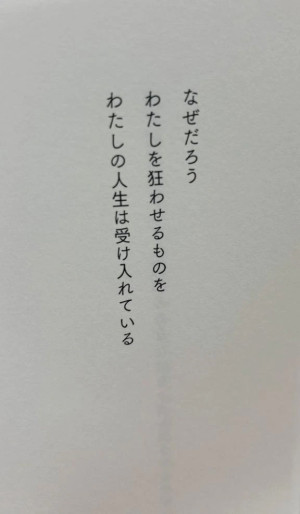 なぜだろう
わたしを狂わせるものを
わたしの人生は受け入れている